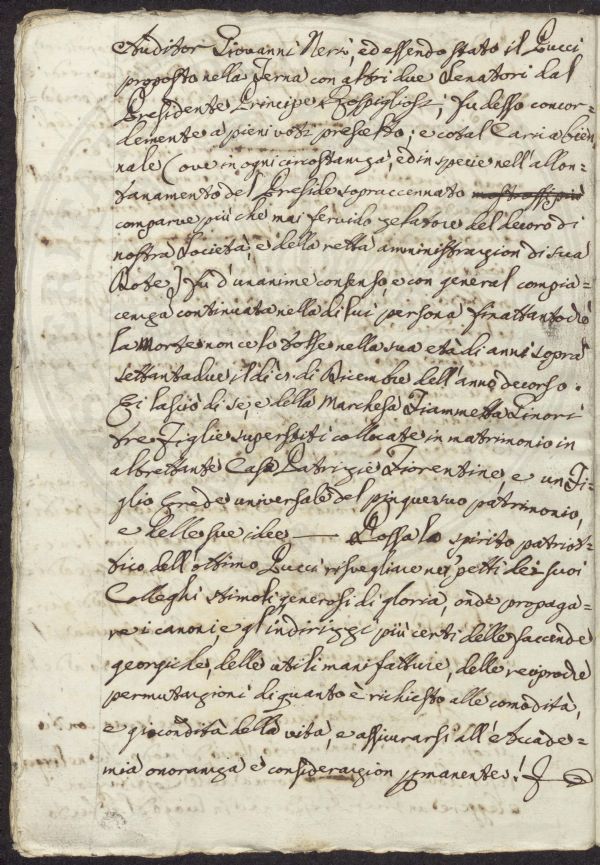 Auditor Giovanni Neri, ed essendo stato il Pucci
proposto nella Terna con altri due Senatori dal
Presidente Principe Rospigliosi, fu desso concor-
demente a pieni voti prescelto; e cotal Carica bien-
nale (ove in ogni circostanza, ed in specie nell'allon-
tanamento del Preside sopraccennato
comparve più che mai fervido zelatore del decoro di
nostra Società, e della retta amministrazion di sua
Dote) fu d'unanime consenso, e con general compia-
cenza continuata nella di lui persona finattantochè
la Morte non ce lo tolse nella sua età di anni sopra
settantadue il dì di Dicembre dell'anno decorso.
Ei lasciò di se, e della Marchesa Fiammetta Ginori
tre Figlie superstiti collocate in matrimonio in
altrettante Case Patrizie Fiorentine, e un Fi-
glio Erede universale del pingue suo patrimonio,
e delle sue idee — Possa lo spirito patriot-
tico dell'ottimo Pucci risvegliare nei petti dei suoi
Colleghi stimoli generosi di gloria, onde propaga-
re i canoni, e gl'indirizzi più certi delle faccende
georgiche, delle utili manifatture, delle reciproche
permutazioni di quanto è richiesto alle comodità,
e giocondità della vita, e assicurarsi all'Accade-
mia onoranza e considerazion pmanente!